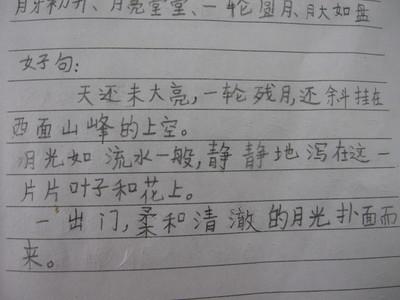 月牙初升、月亮堂堂、一轮圆月、月大如盘
好句：
天还未大亮，一轮残月，还斜挂在
西面山峰的上空。
月光如流水一般，静静地泻在这一
片片叶子和花上。
一出门，柔和清澈的月光扑面而
来。